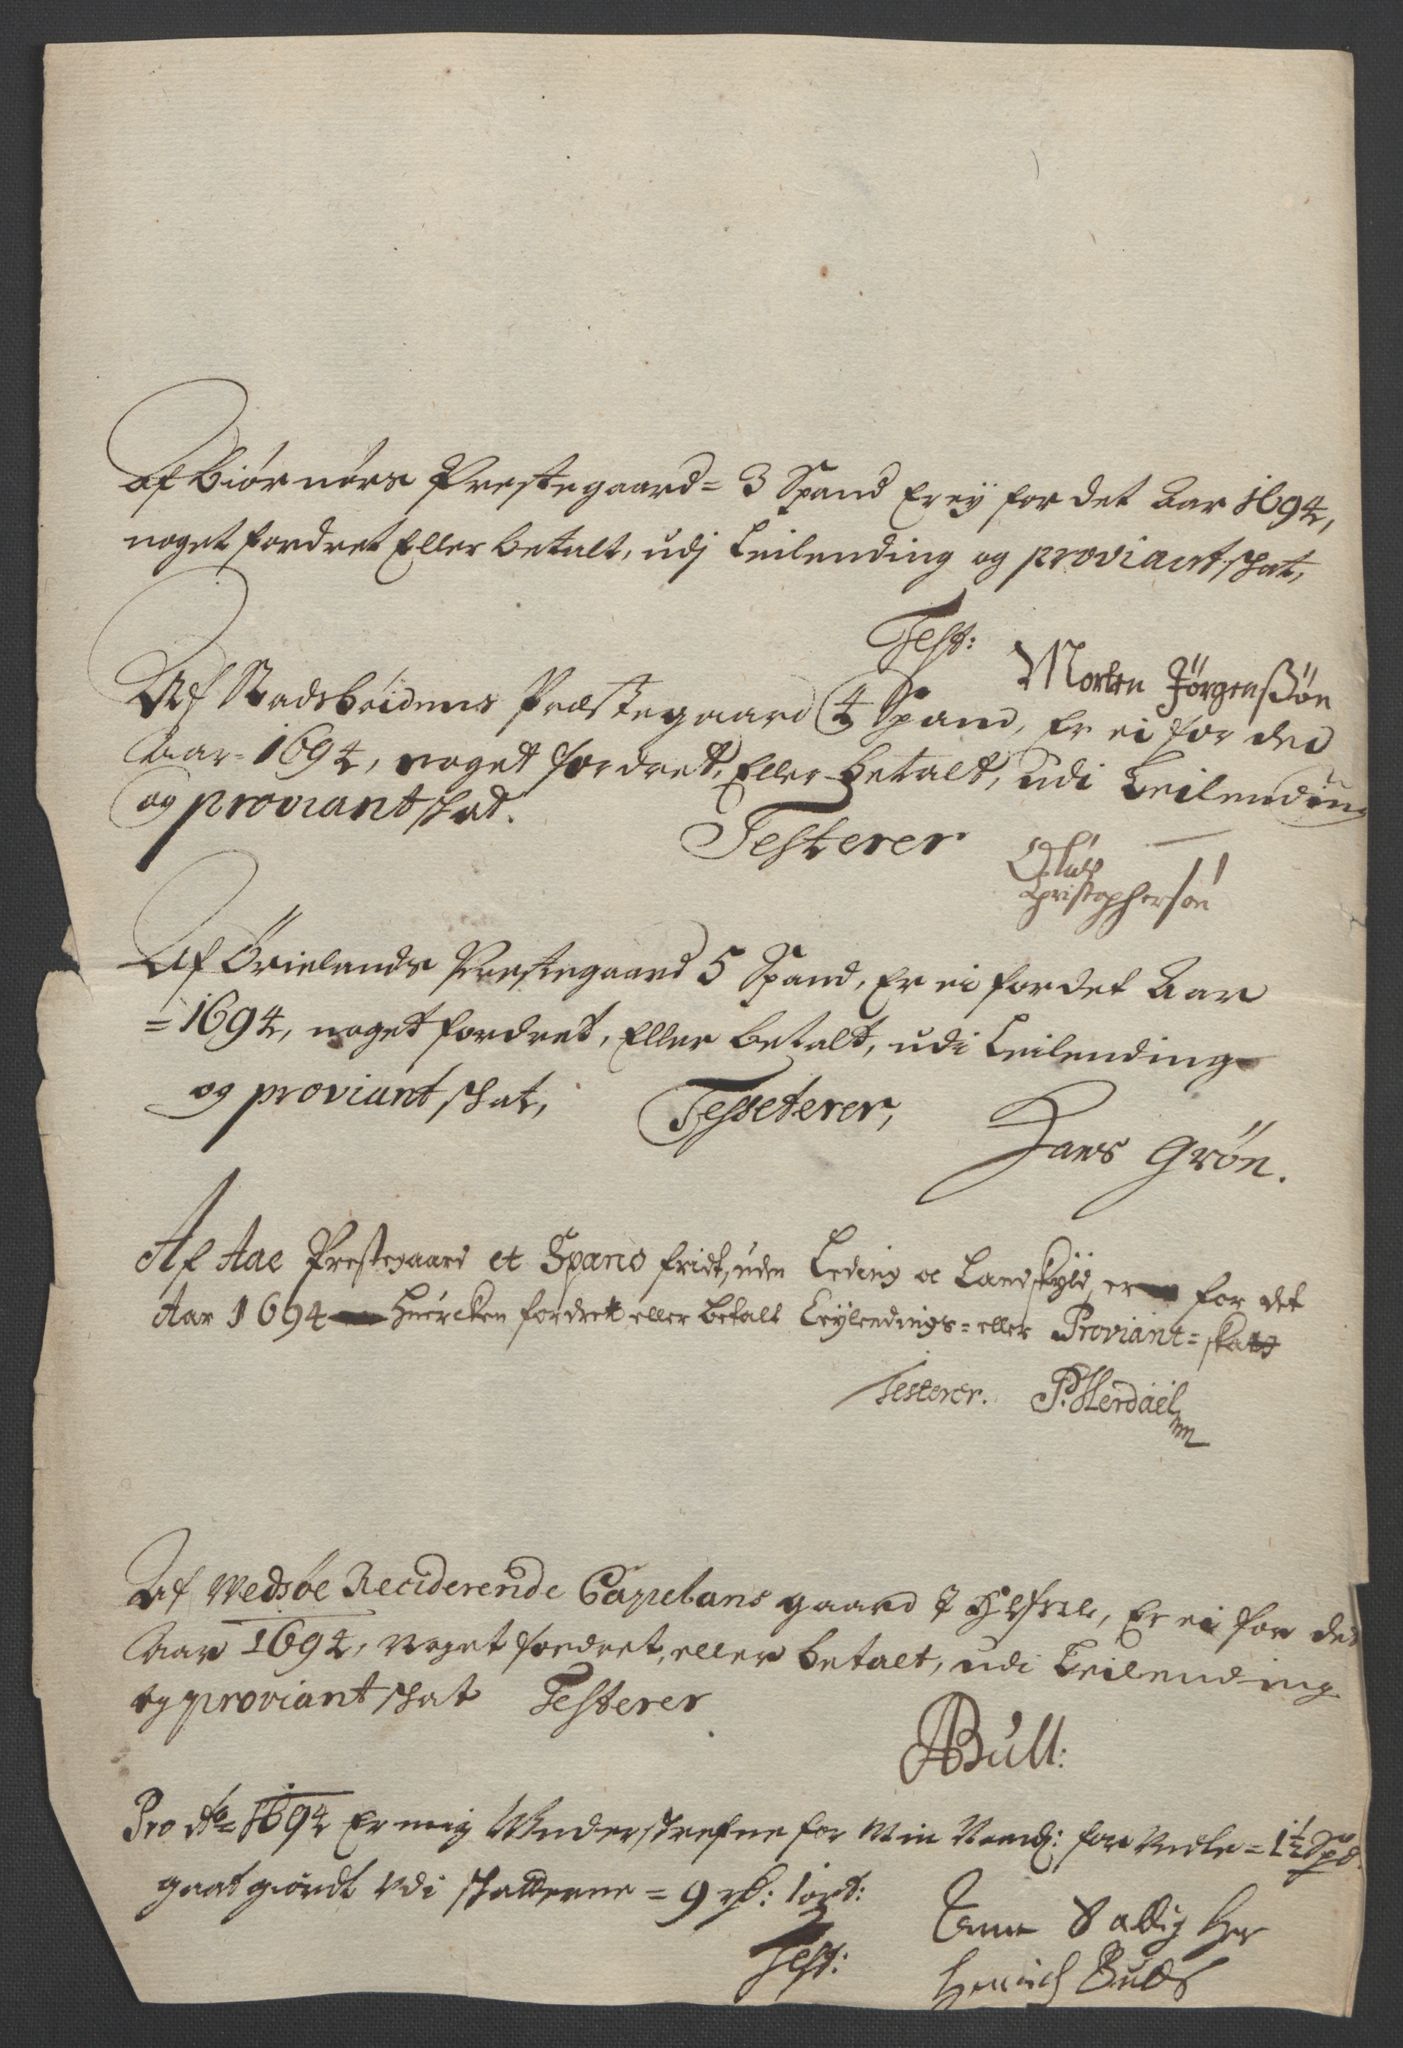 Af Biørnørs Prestegaard = 3 Spand Er ej for det Aar 1694,
noget fordret Eller betalt, udj Leilending og proviant skat,
Test: Morten JørgensSøn
Af Stadsbøidens Præstegaard 4 Spand, Er ei for ded
Aar = 1694, noget fordret, Eller betalt, udi Leilending
og proviant skat.
Testerer Oluf
Christophersøn
Af Ørielands Prestegaard 5 Spand, Er ei for det Aar
= 1694, noget fordret, Eller betalt, udi Leilending
og proviant skat, Testeterer,
Hans Grøn.
Af Aae Prestegaard et Spand fridt, uden Leding oc Landskyld, er for det
Aar 1694 huercken fordret eller betalt Leylendings = eller Proviant = skatt
Testerer. P. Herdael
mp
Af Wedsøe Reciderende Capelans gaard 2 , Er ei for det
Aar 1694, Noget fordret, eller betalt, udi Leilending
og proviant skat Testerer
ABull:
Pro Ao = 1694 Er mig Underskrefne for Min for = 1½ Spd.
gaat giordt Udi skatterne = 9 rd: 1 ort:
Test: Sallig Her
Henrich Bulds